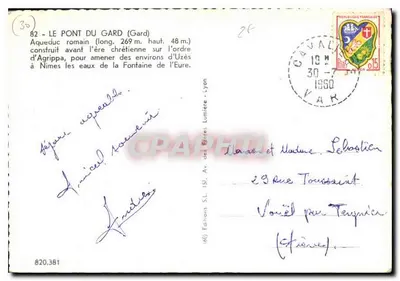 30
25
82 - LE PONT DU GARD (Gard)
Aqueduc romain (long. 269 m. haut. 48 m.)
construit avant l'ère chrétienne sur l'ordre
d'Agrippa, pour amener des environs d'Uzès
à Nimes les eaux de la Fontaine de l'Eure.
CAVALA
30-7
1960
VAR
Séjour agréable
Amical souvenir
CARTEPOST
Monsieur et Madame Sebastien
29 Rue Toussaint
Vouël par Tergnier
(Aisne)
820.381